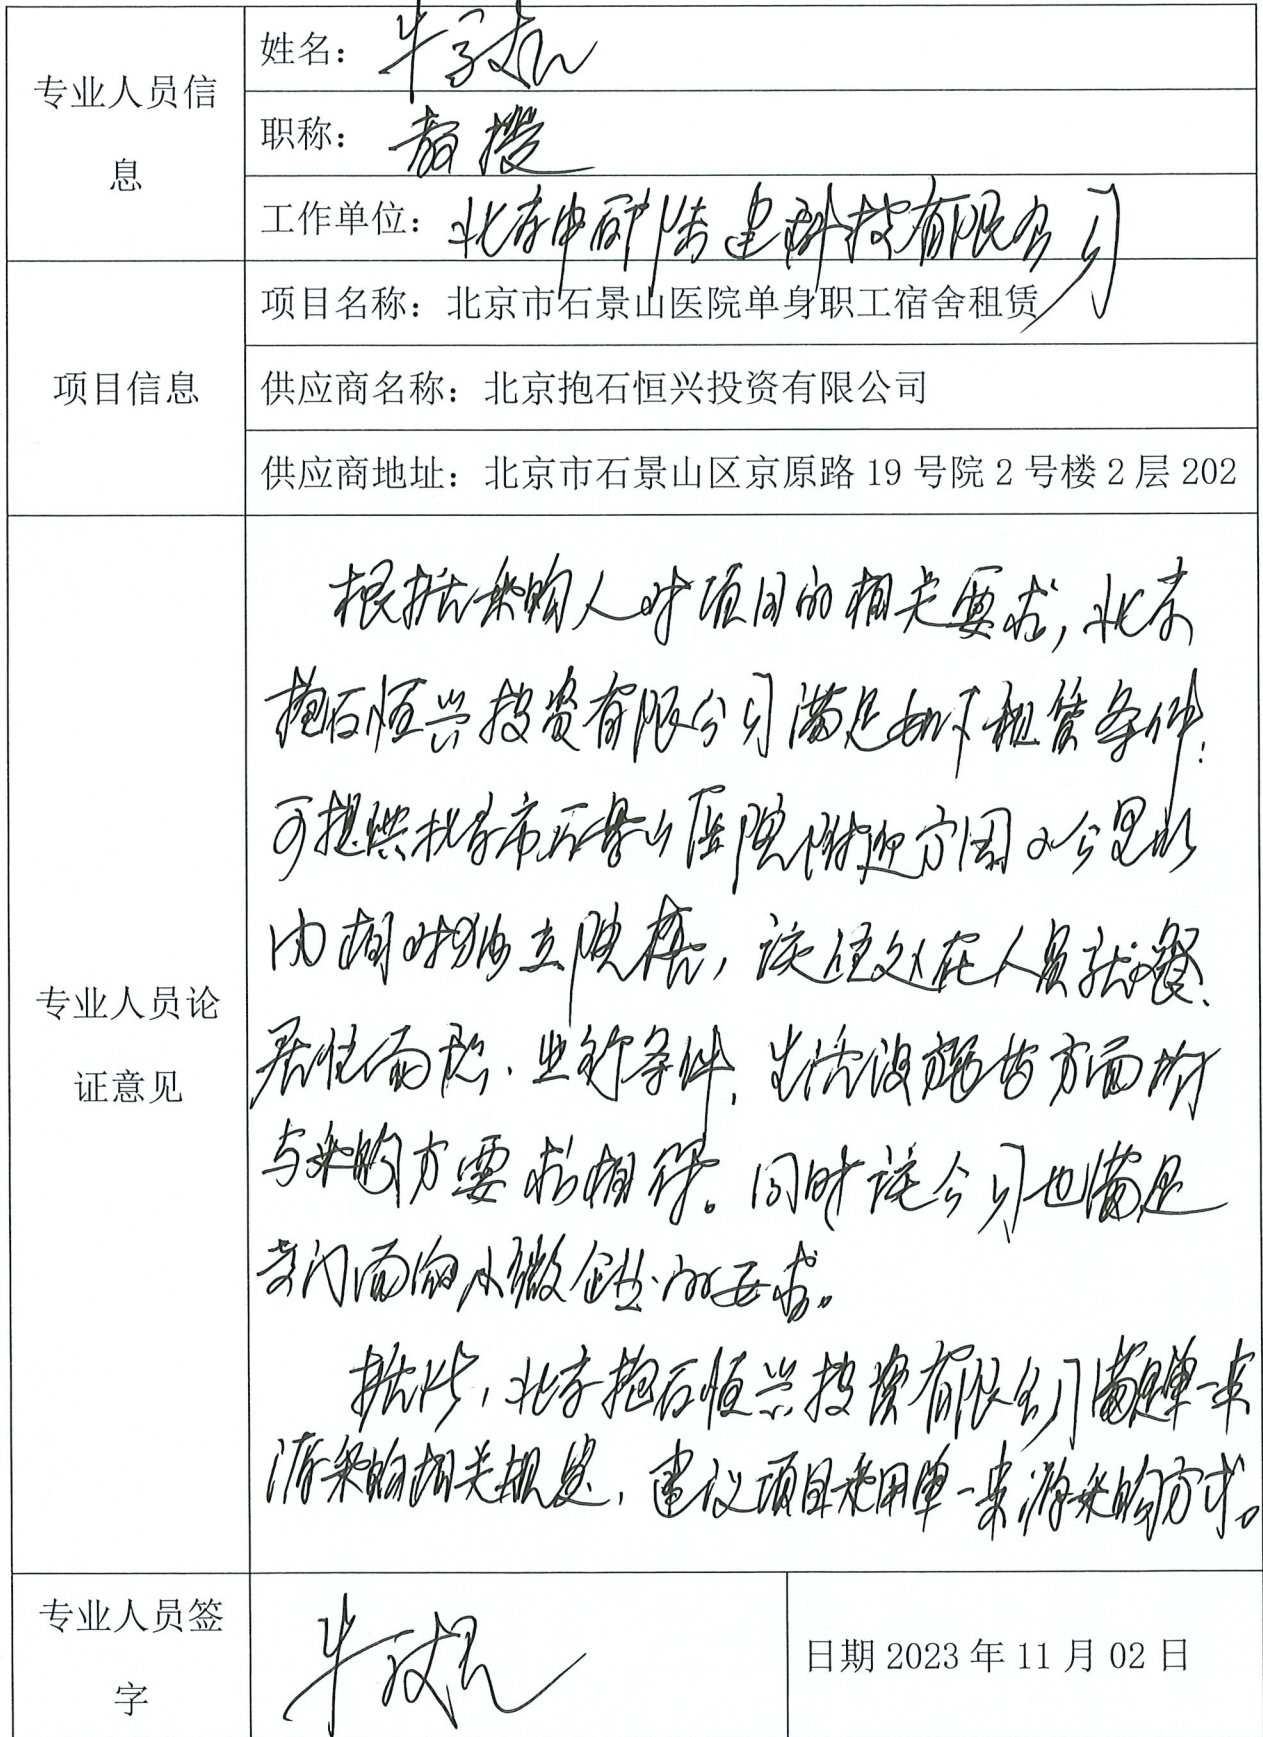 专业人员信
息
姓名：
职称：教授
工作单位：北京中研 建科技有限公司
项目信息
项目名称：北京市石景山医院单身职工宿舍租赁
供应商名称：北京抱石恒兴投资有限公司
供应商地址：北京市石景山区京原路 19 号院 2 号楼 2 层 202
专业人员论
证意见
根据采购人对项目的相关要求，北京
抱石恒兴投资有限公司满足如下租赁条件：
可提供北京市石景山医院附近方圆 公里以
内相对独立院楼，该 在人员就餐、
居住面积、 条件、生活设施等方面均
与采购方要求相符。同时该公司也满足
专门面向小微企业的要求。
据此，北京抱石恒兴投资有限公司满足单一来
源采购相关规定，建议项目采用单一来源采购方式。
专业人员签
字
日期 2023 年 11 月 02 日